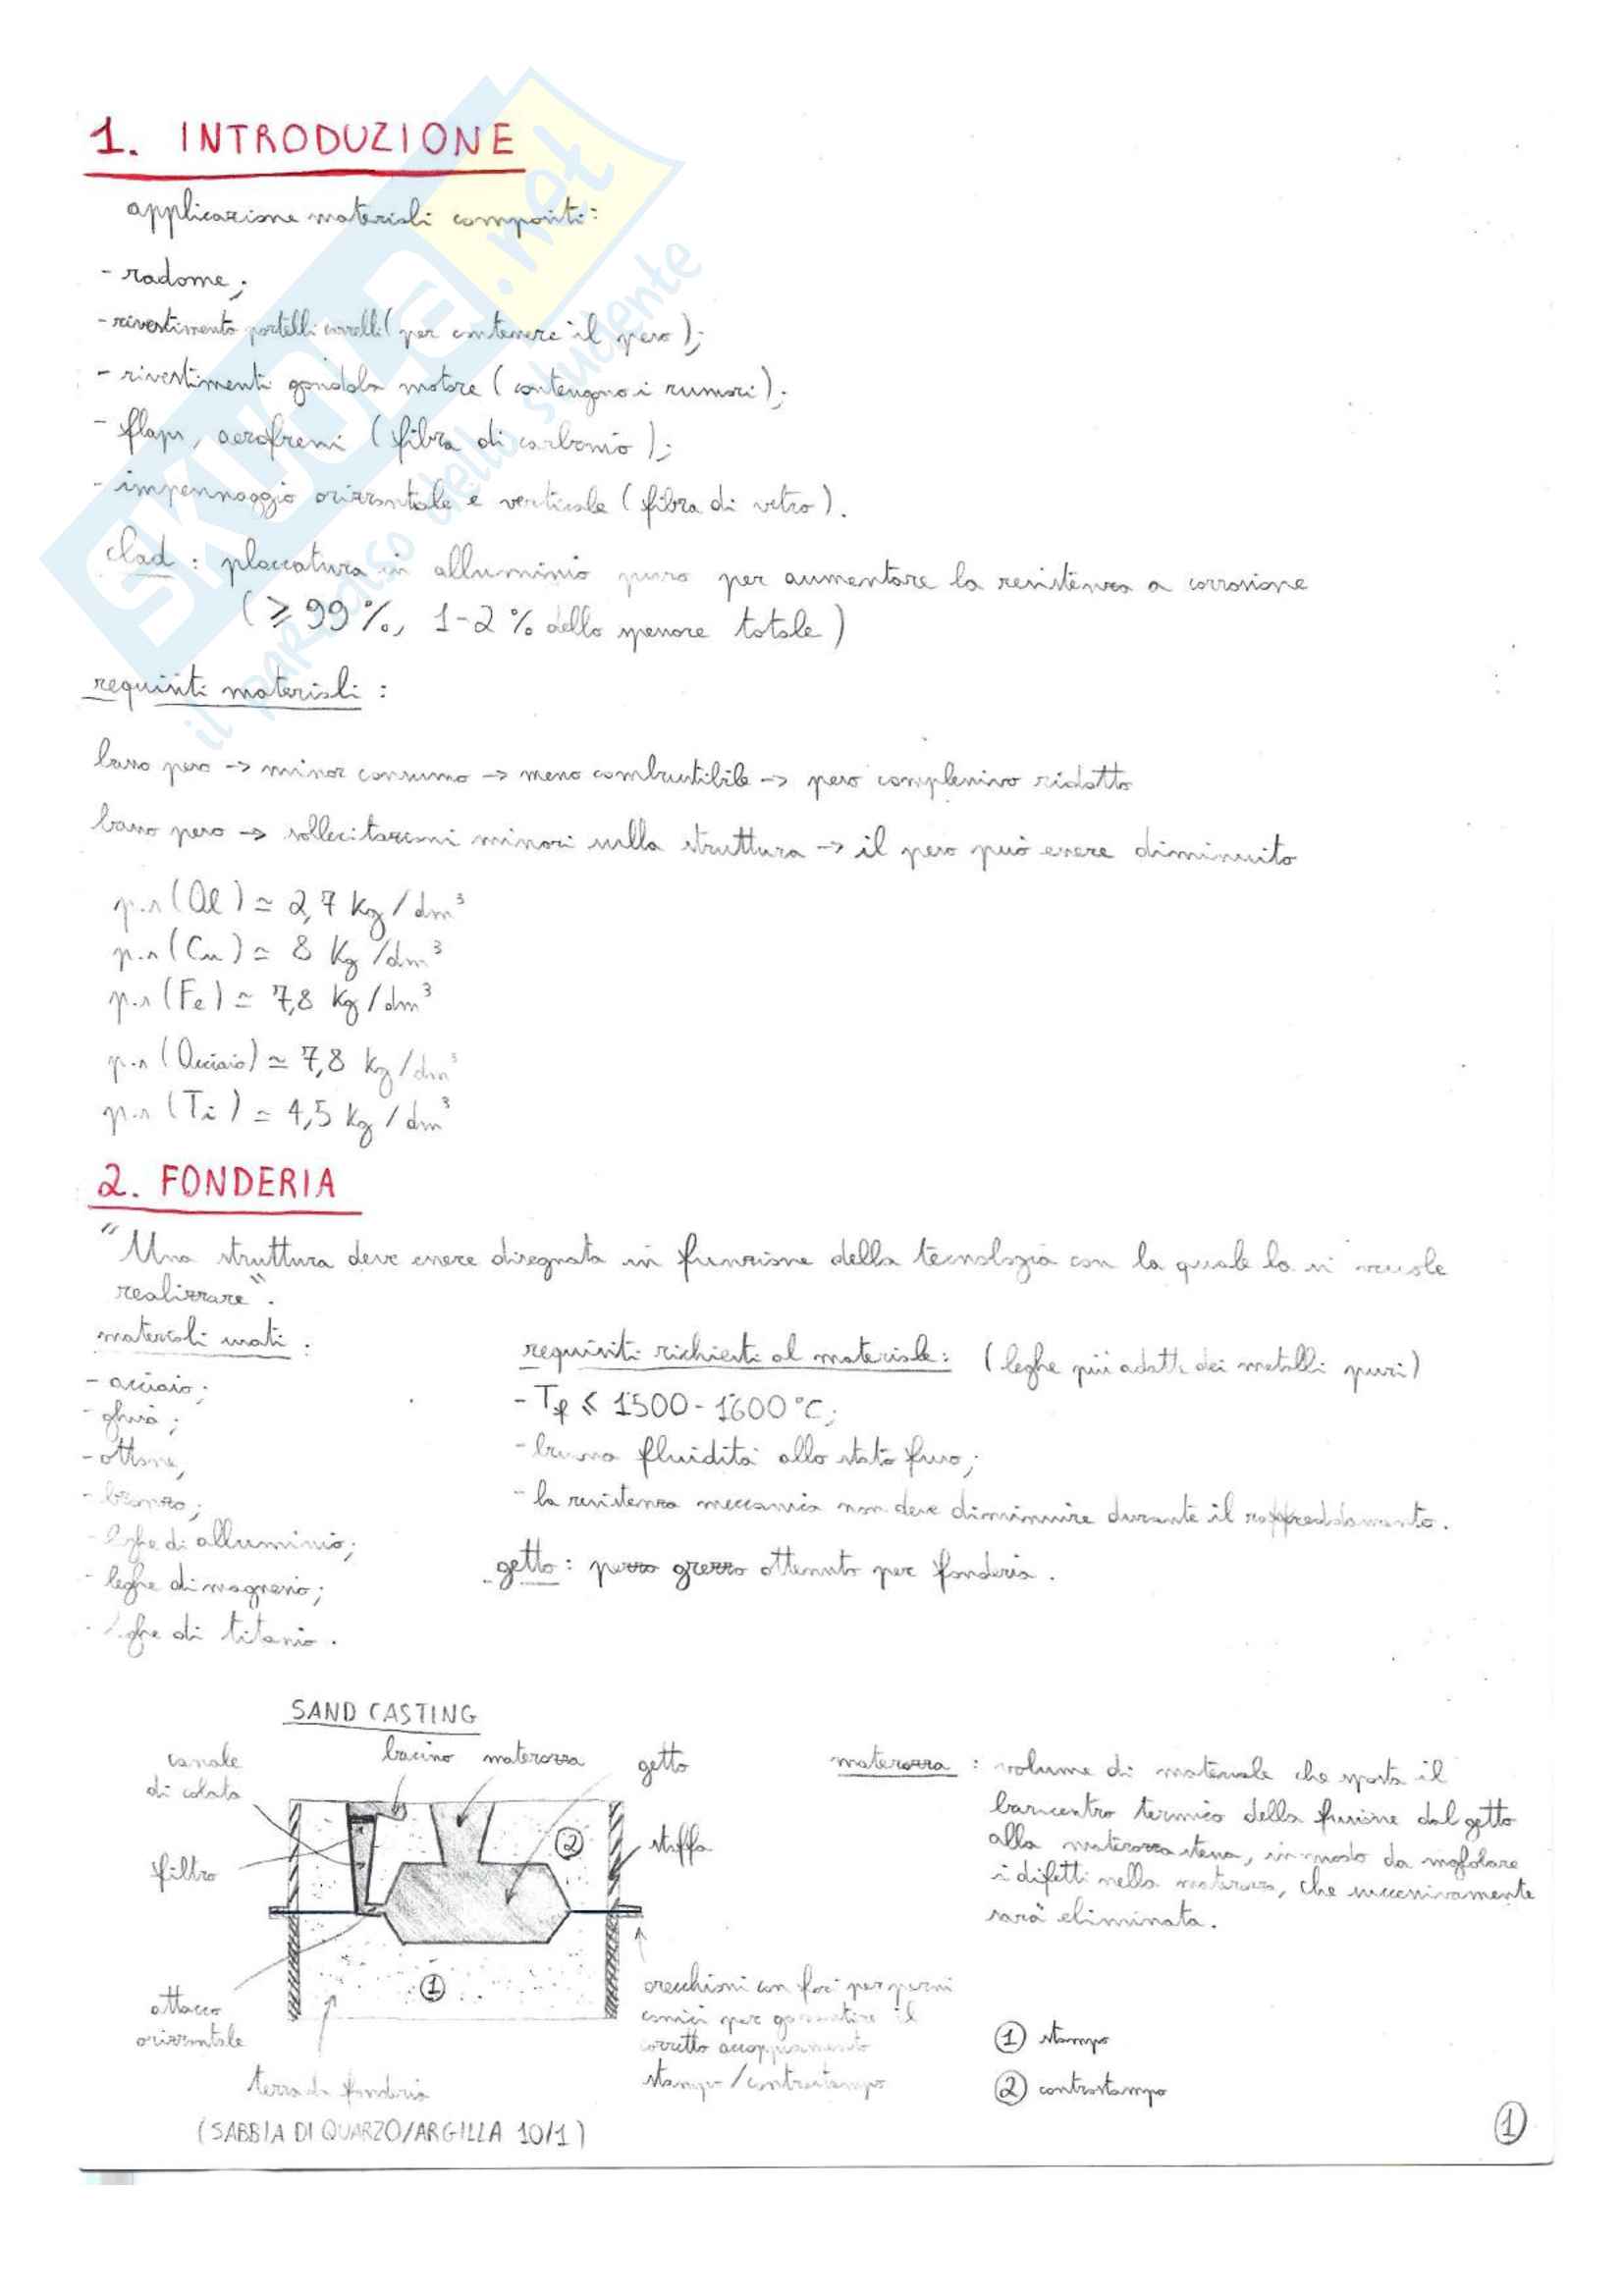 1. INTRODUZIONE
applicazione materiali compositi:
- radome;
- rivestimento portelli carrelli (per contenere il peso);
- rivestimenti gondola motore (contengono i rumori);
- flaps, aerofreni (fibra di carbonio);
- impennaggio orizzontale e verticale (fibra di vetro).
clad : placcatura in alluminio puro per aumentare la resistenza a corrosione
(≥ 99 %, 1-2 % dello spessore totale)
requisiti materiali :
basso peso -> minor consumo -> meno combustibile -> peso complessivo ridotto
basso peso -> sollecitazioni minori sulla struttura -> il peso può essere diminuito
p.s (Al) ≃ 2,7 Kg/dm³
p.s (Cu) ≃ 8 Kg/dm³
p.s (Fe) ≃ 7,8 Kg/dm³
p.s (Acciaio) ≃ 7,8 Kg/dm³
p.s (Ti) ≃ 4,5 Kg/dm³
2. FONDERIA
"Una struttura deve essere disegnata in funzione della tecnologia con la quale la si vuole
realizzare".
materiali usati :
- acciaio;
- ghisa;
- ottone;
- bronzo;
- leghe di alluminio;
- leghe di magnesio;
- leghe di titanio.
requisiti richiesti al materiale: (leghe più adatte dei metalli puri)
- Tf ≤ 1500 - 1600 °C;
- buona fluidità allo stato fuso;
- la resistenza meccanica non deve diminuire durante il raffreddamento.
getto : pezzo grezzo ottenuto per fonderia.
SAND CASTING
canale
di colata
bacino
materozza
getto
filtro
staffa
attacco
orizzontale
terra da fonderia
(SABBIA DI QUARZO/ARGILLA 10/1)
orecchioni con fori per perni
conici per garantire il
corretto accoppiamento
stampo/controstampo
2
1
materozza : volume di materiale che sposta il
baricentro termico della fusione dal getto
alla materozza stessa, in modo da
i difetti nella materozza, che successivamente
sarà eliminata.
1 stampo
2 controstampo
1
SKUOLA.net
il paradiso dello studente